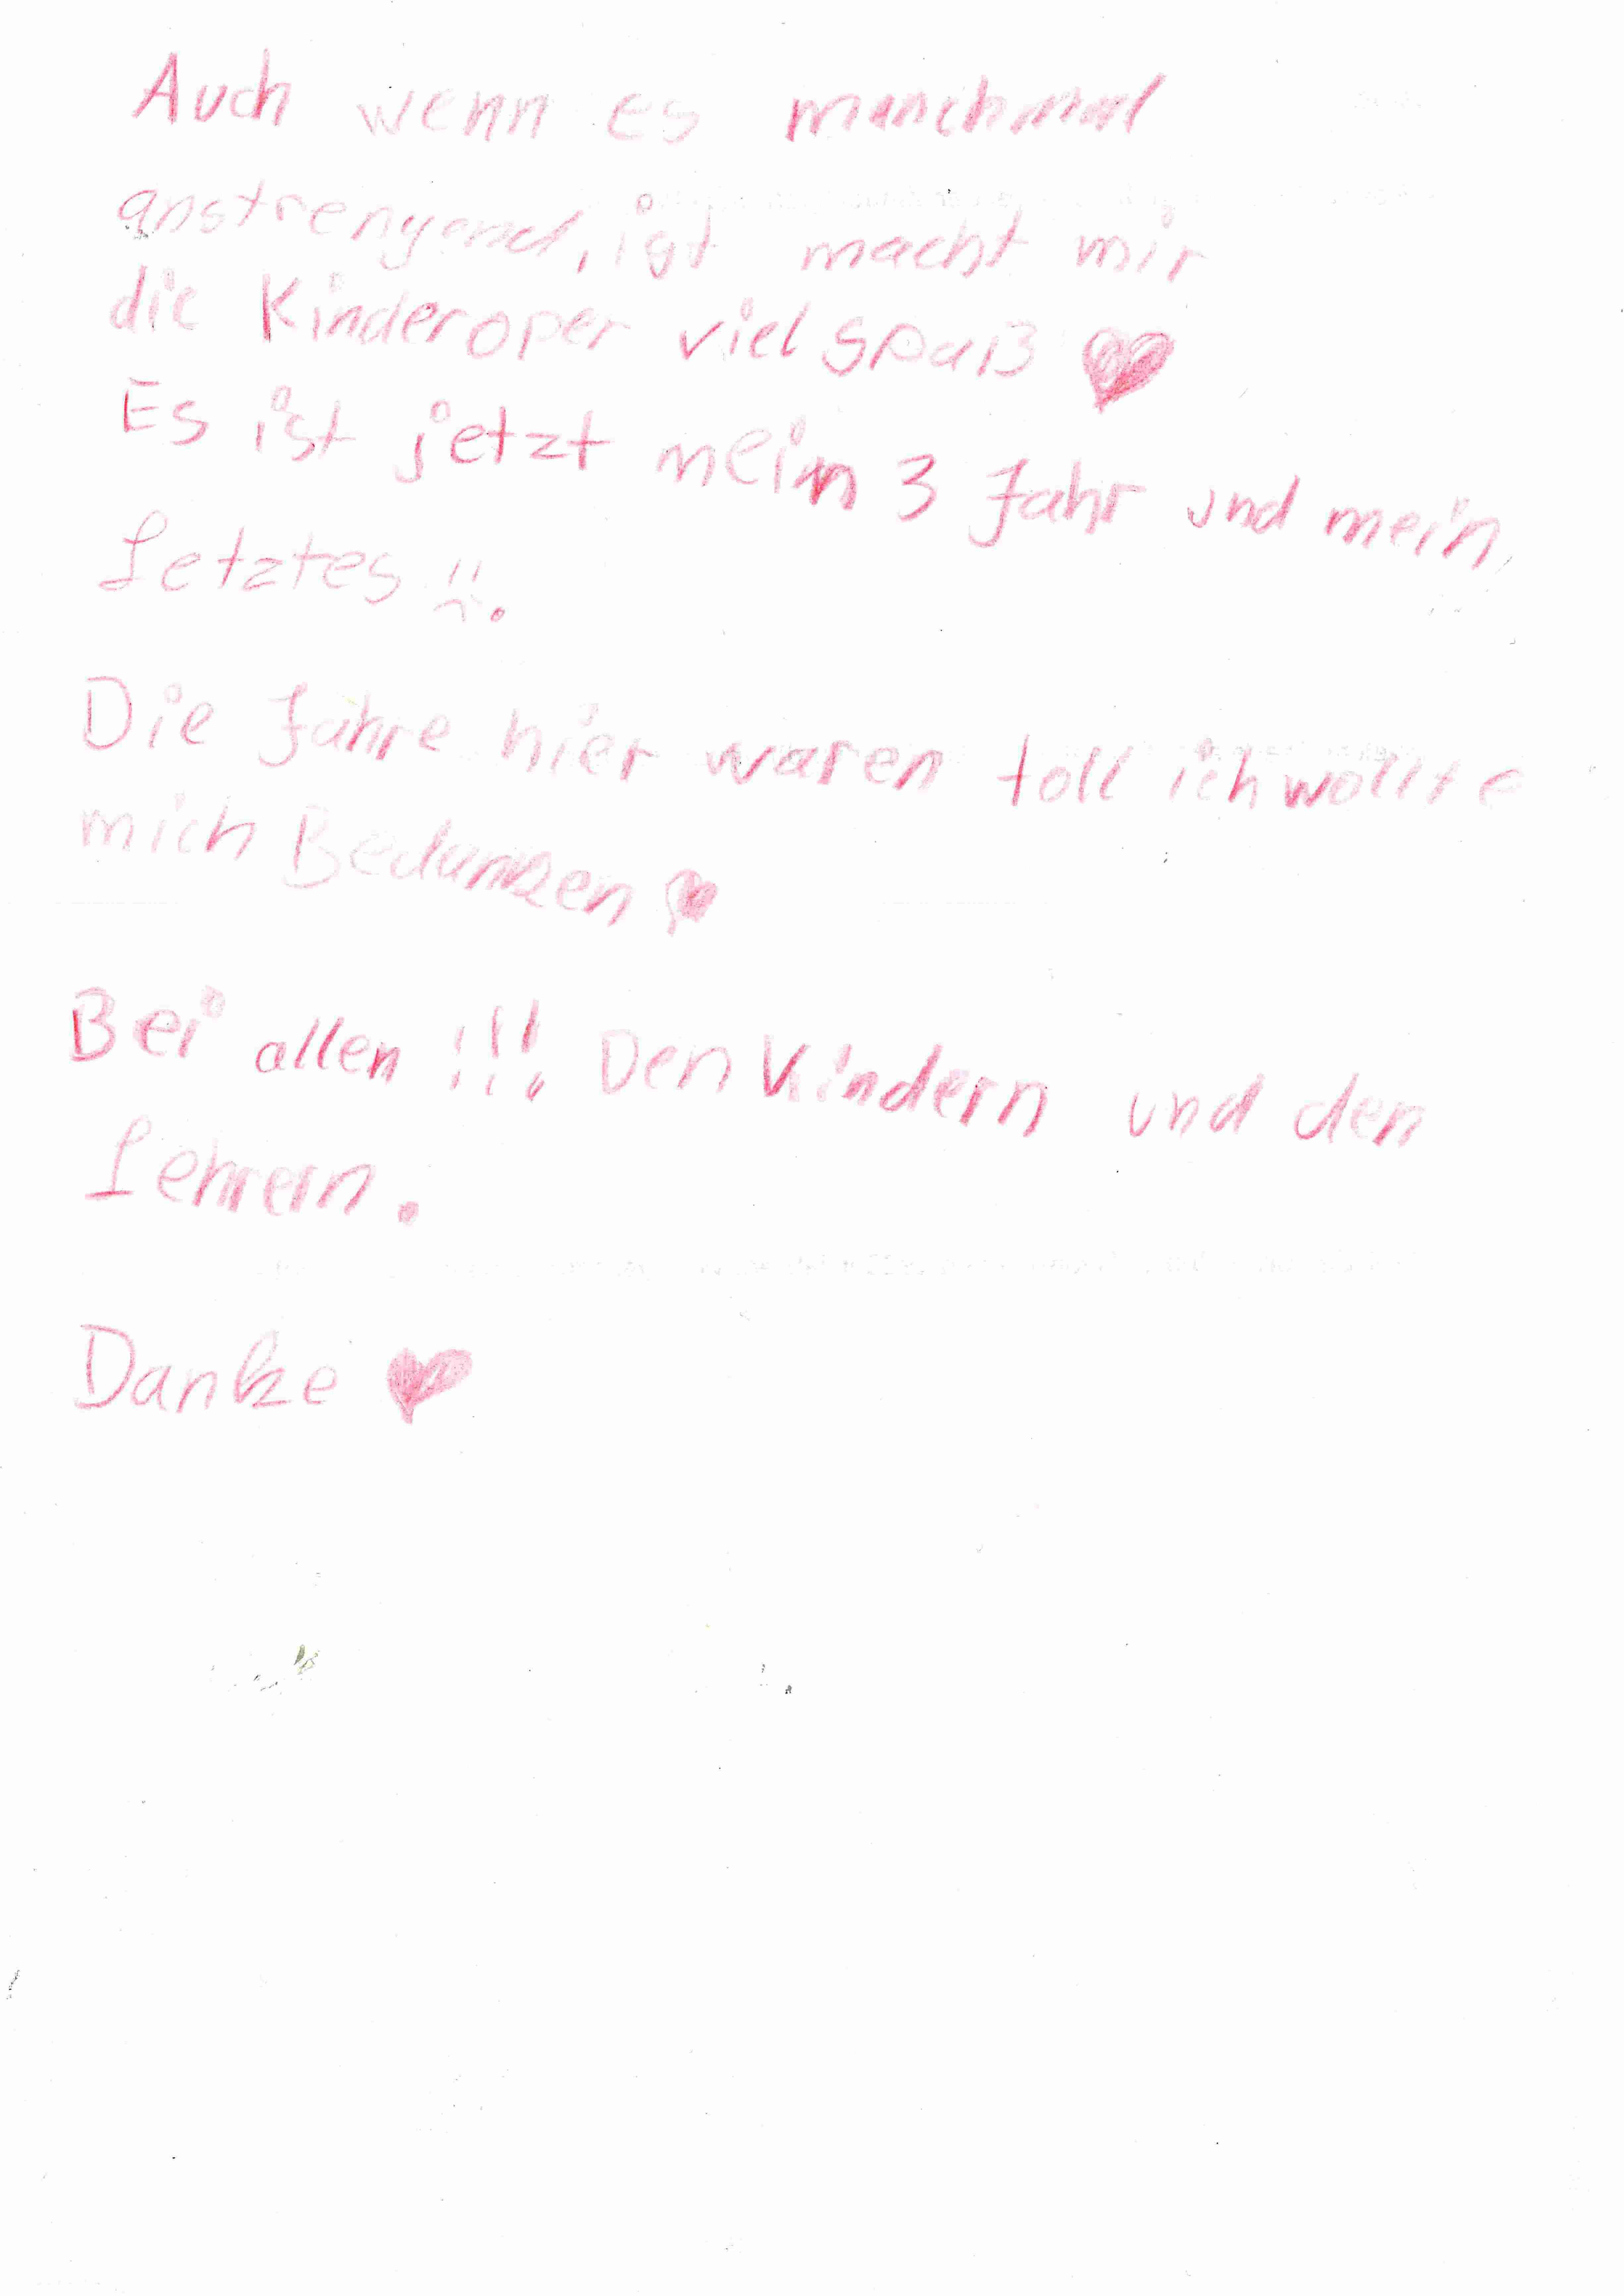 Auch wenn es manchmal
anstrengend, ist macht mir
die Kinderoper viel spaß ♥
Es ist jetzt mein 3 Jahr und mein
Letztes :(.
Die Jahre hier waren toll ich wollte
mich Bedanken ♥
Bei allen !!! Den Kindern und den
Lehrern.
Danke ♥